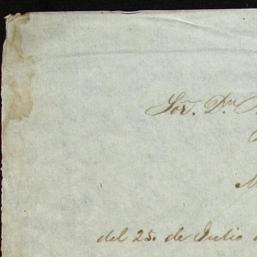 Sor. Dn
del 25. de Julio